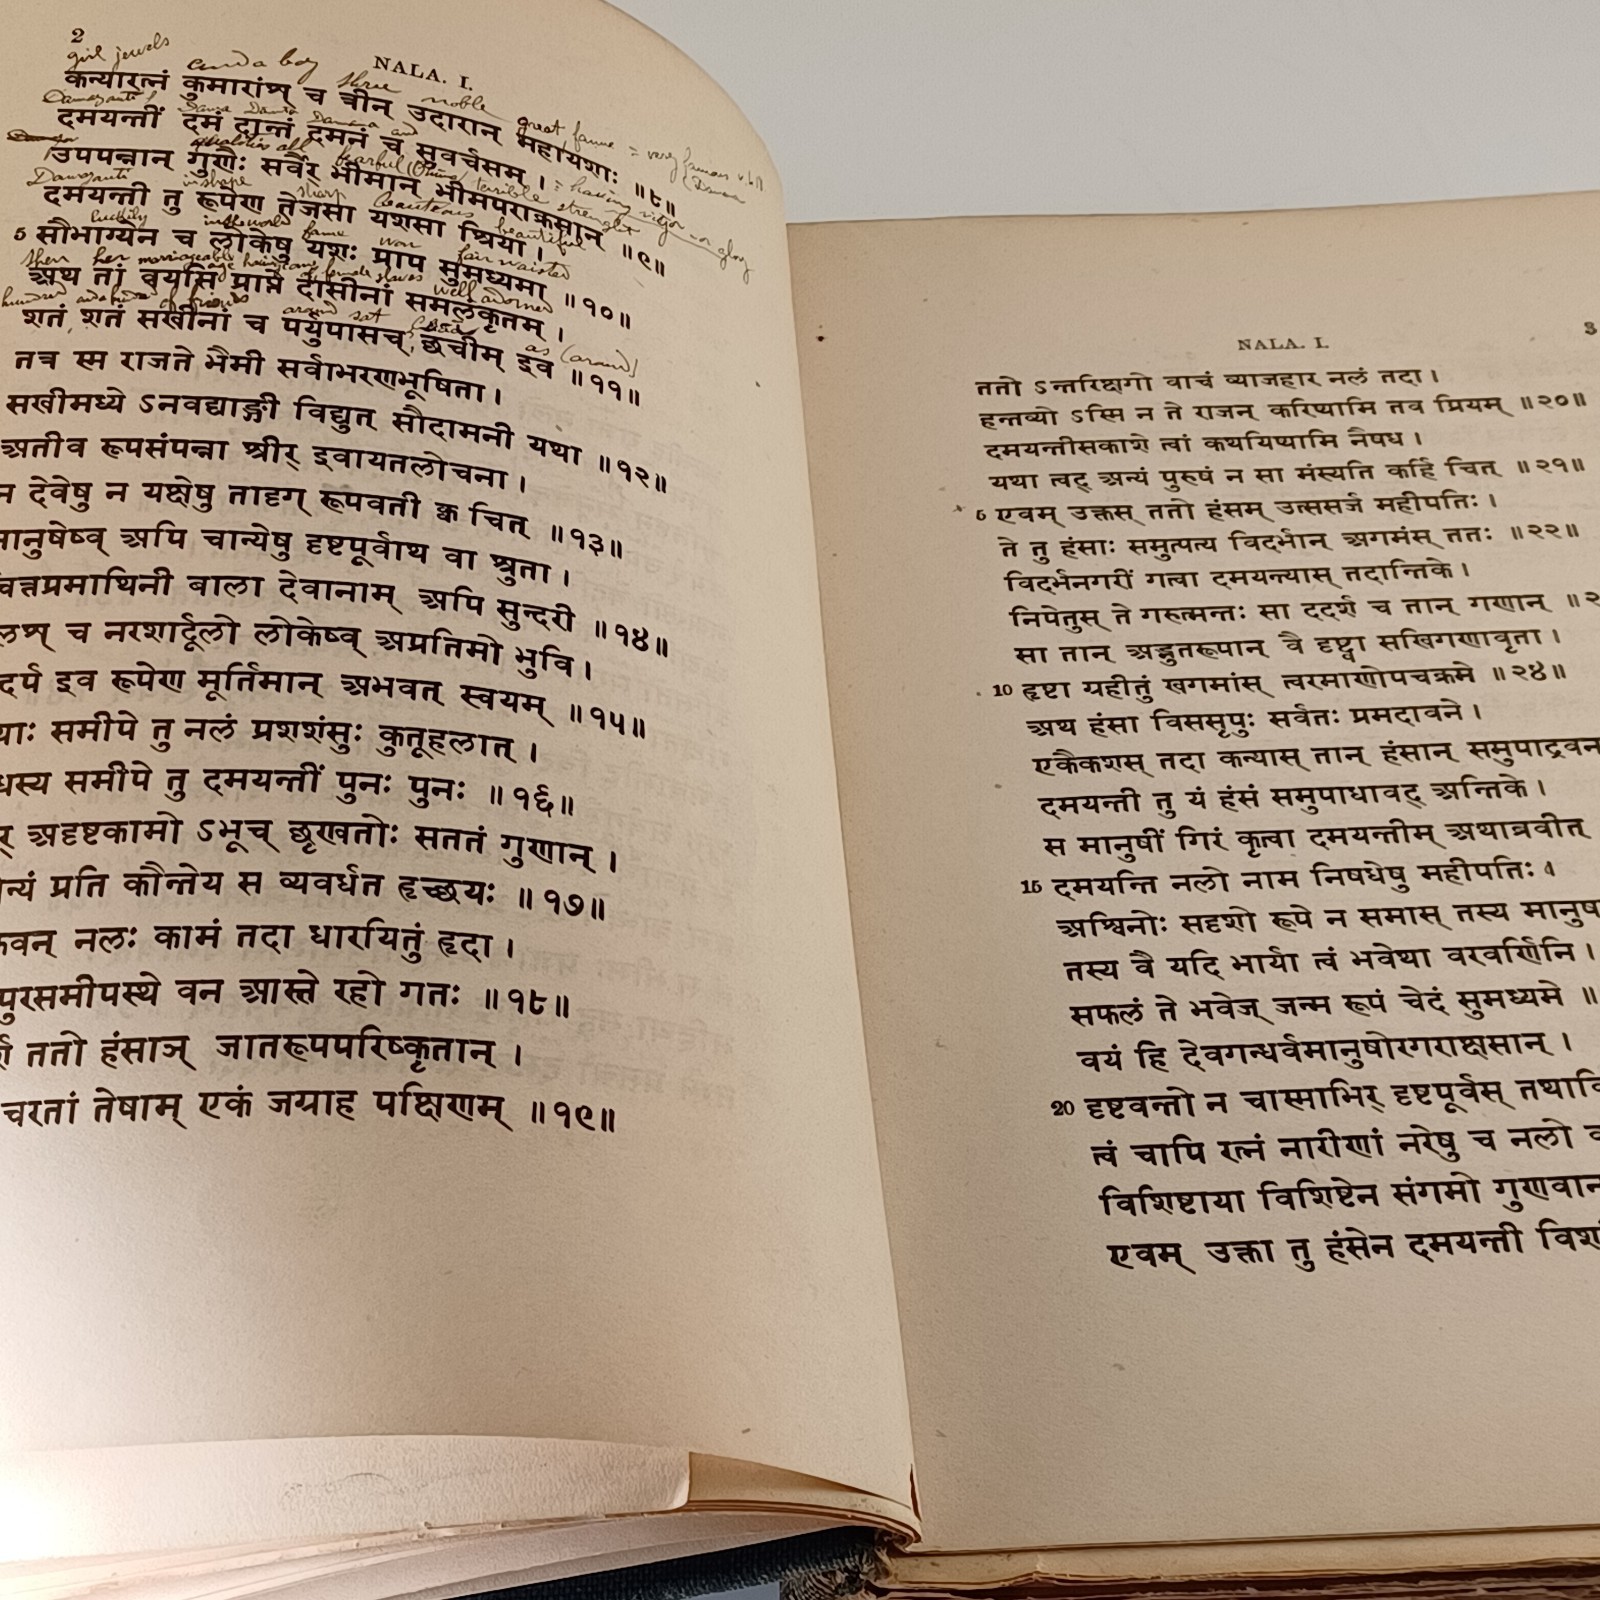 2
NALA. I.
girl jewels and a boy three noble great fame = very famous
कन्यारत्नं कुमारांश् च त्रीन् उदारान् महायशाः ॥८॥
Damayanti Dama Danta Damana and
दमयन्तीं दमं दान्तं दमनं च सुवर्चसम् ।
qualities all fearful terrible strenght = having vigor or glory
उपपन्नान् गुणैः सर्वैर् भीमान् भीमपराक्रमान् ॥९॥
Damayanti in shape sharp beauteous beautiful
दमयन्ती तु रूपेण तेजसा यशसा श्रिया ।
luckily in the world fame won fair waisted
5 सौभाग्येन च लोकेषु यशः प्राप सुमध्यमा ॥१०॥
then her marriageable age having come female slaves well adorned
अथ तां वयसि प्राप्ते दासीनां समलंकृतम् ।
hundred and hundred of friends around sat as
शतं शतं सखीनां च पर्युपासच् छचीम् इव ॥११॥
तत्र स्म राजते भैमी सर्वाभरणभूषिता ।
सखीमध्ये ऽनवद्याङ्गी विद्युत् सौदामनी यथा ॥१२॥
अतीव रूपसंपन्ना श्रीर् इवायतलोचना ।
न देवेषु न यक्षेषु तादृग् रूपवती क्व चित् ॥१३॥
मानुषेष्व् अपि चान्येषु दृष्टपूर्वाथ वा श्रुता ।
त्तप्रमाथिनी बाला देवानाम् अपि सुन्दरी ॥१४॥
लश् च नरशार्दूलो लोकेष्व् अप्रतिमो भुवि ।
दर्प इव रूपेण मूर्तिमान् अभवत् स्वयम् ॥१५॥
याः समीपे तु नलं प्रशशंसुः कुतूहलात् ।
धस्य समीपे तु दमयन्तीं पुनः पुनः ॥१६॥
र् अदृष्टकामो ऽभूच् छृण्वतोः सततं गुणान् ।
न्यं प्रति कौन्तेय स व्यवर्धत हृच्छयः ॥१७॥
क्नुवन् नलः कामं तदा धारयितुं हृदा ।
पुरसमीपस्थे वन आस्ते रहो गतः ॥१८॥
र्श ततो हंसाञ् जातरूपपरिष्कृतान् ।
चरतां तेषाम् एकं जग्राह पक्षिणम् ॥१९॥
NALA. I.
3
ततो ऽन्तरिक्षगो वाचं व्याजहार नलं तदा ।
हन्तव्यो ऽस्मि न ते राजन् करिष्यामि तव प्रियम् ॥२०॥
दमयन्तीसकाशे त्वां कथयिष्यामि नैषध ।
यथा त्वद् अन्यं पुरुषं न सा मंस्यति कर्हि चित् ॥२१॥
5 एवम् उक्तस् ततो हंसम् उत्ससर्ज महीपतिः ।
ते तु हंसाः समुत्पत्य विदर्भान् अगमंस् ततः ॥२२॥
विदर्भनगरीं गत्वा दमयन्त्यास् तदान्तिके ।
निपेतुस् ते गरुत्मन्तः सा ददर्श च तान् गणान् ॥२
सा तान् अद्भुतरूपान् वै दृष्ट्वा सखिगणावृता ।
10 हृष्टा ग्रहीतुं खगमांस् त्वरमाणोपचक्रमे ॥२४॥
अथ हंसा विससृपुः सर्वतः प्रमदावने ।
एकैकशस् तदा कन्यास् तान् हंसान् समुपाद्रवन
दमयन्ती तु यं हंसं समुपाधावद् अन्तिके ।
स मानुषीं गिरं कृत्वा दमयन्तीम् अथाब्रवीत्
15 दमयन्ति नलो नाम निषधेषु महीपतिः ।
अश्विनोः सदृशो रूपे न समास् तस्य मानुष
तस्य वै यदि भार्या त्वं भवेथा वरवर्णिनि ।
सफलं ते भवेज् जन्म रूपं चेदं सुमध्यमे ॥
वयं हि देवगन्धर्वमानुषोरगराक्षसान् ।
20 दृष्टवन्तो न चास्माभिर् दृष्टपूर्वस् तथावि
त्वं चापि रत्नं नारीणां नरेषु च नलो व
विशिष्टाया विशिष्टेन संगमो गुणवान
एवम् उक्ता तु हंसेन दमयन्ती विशां